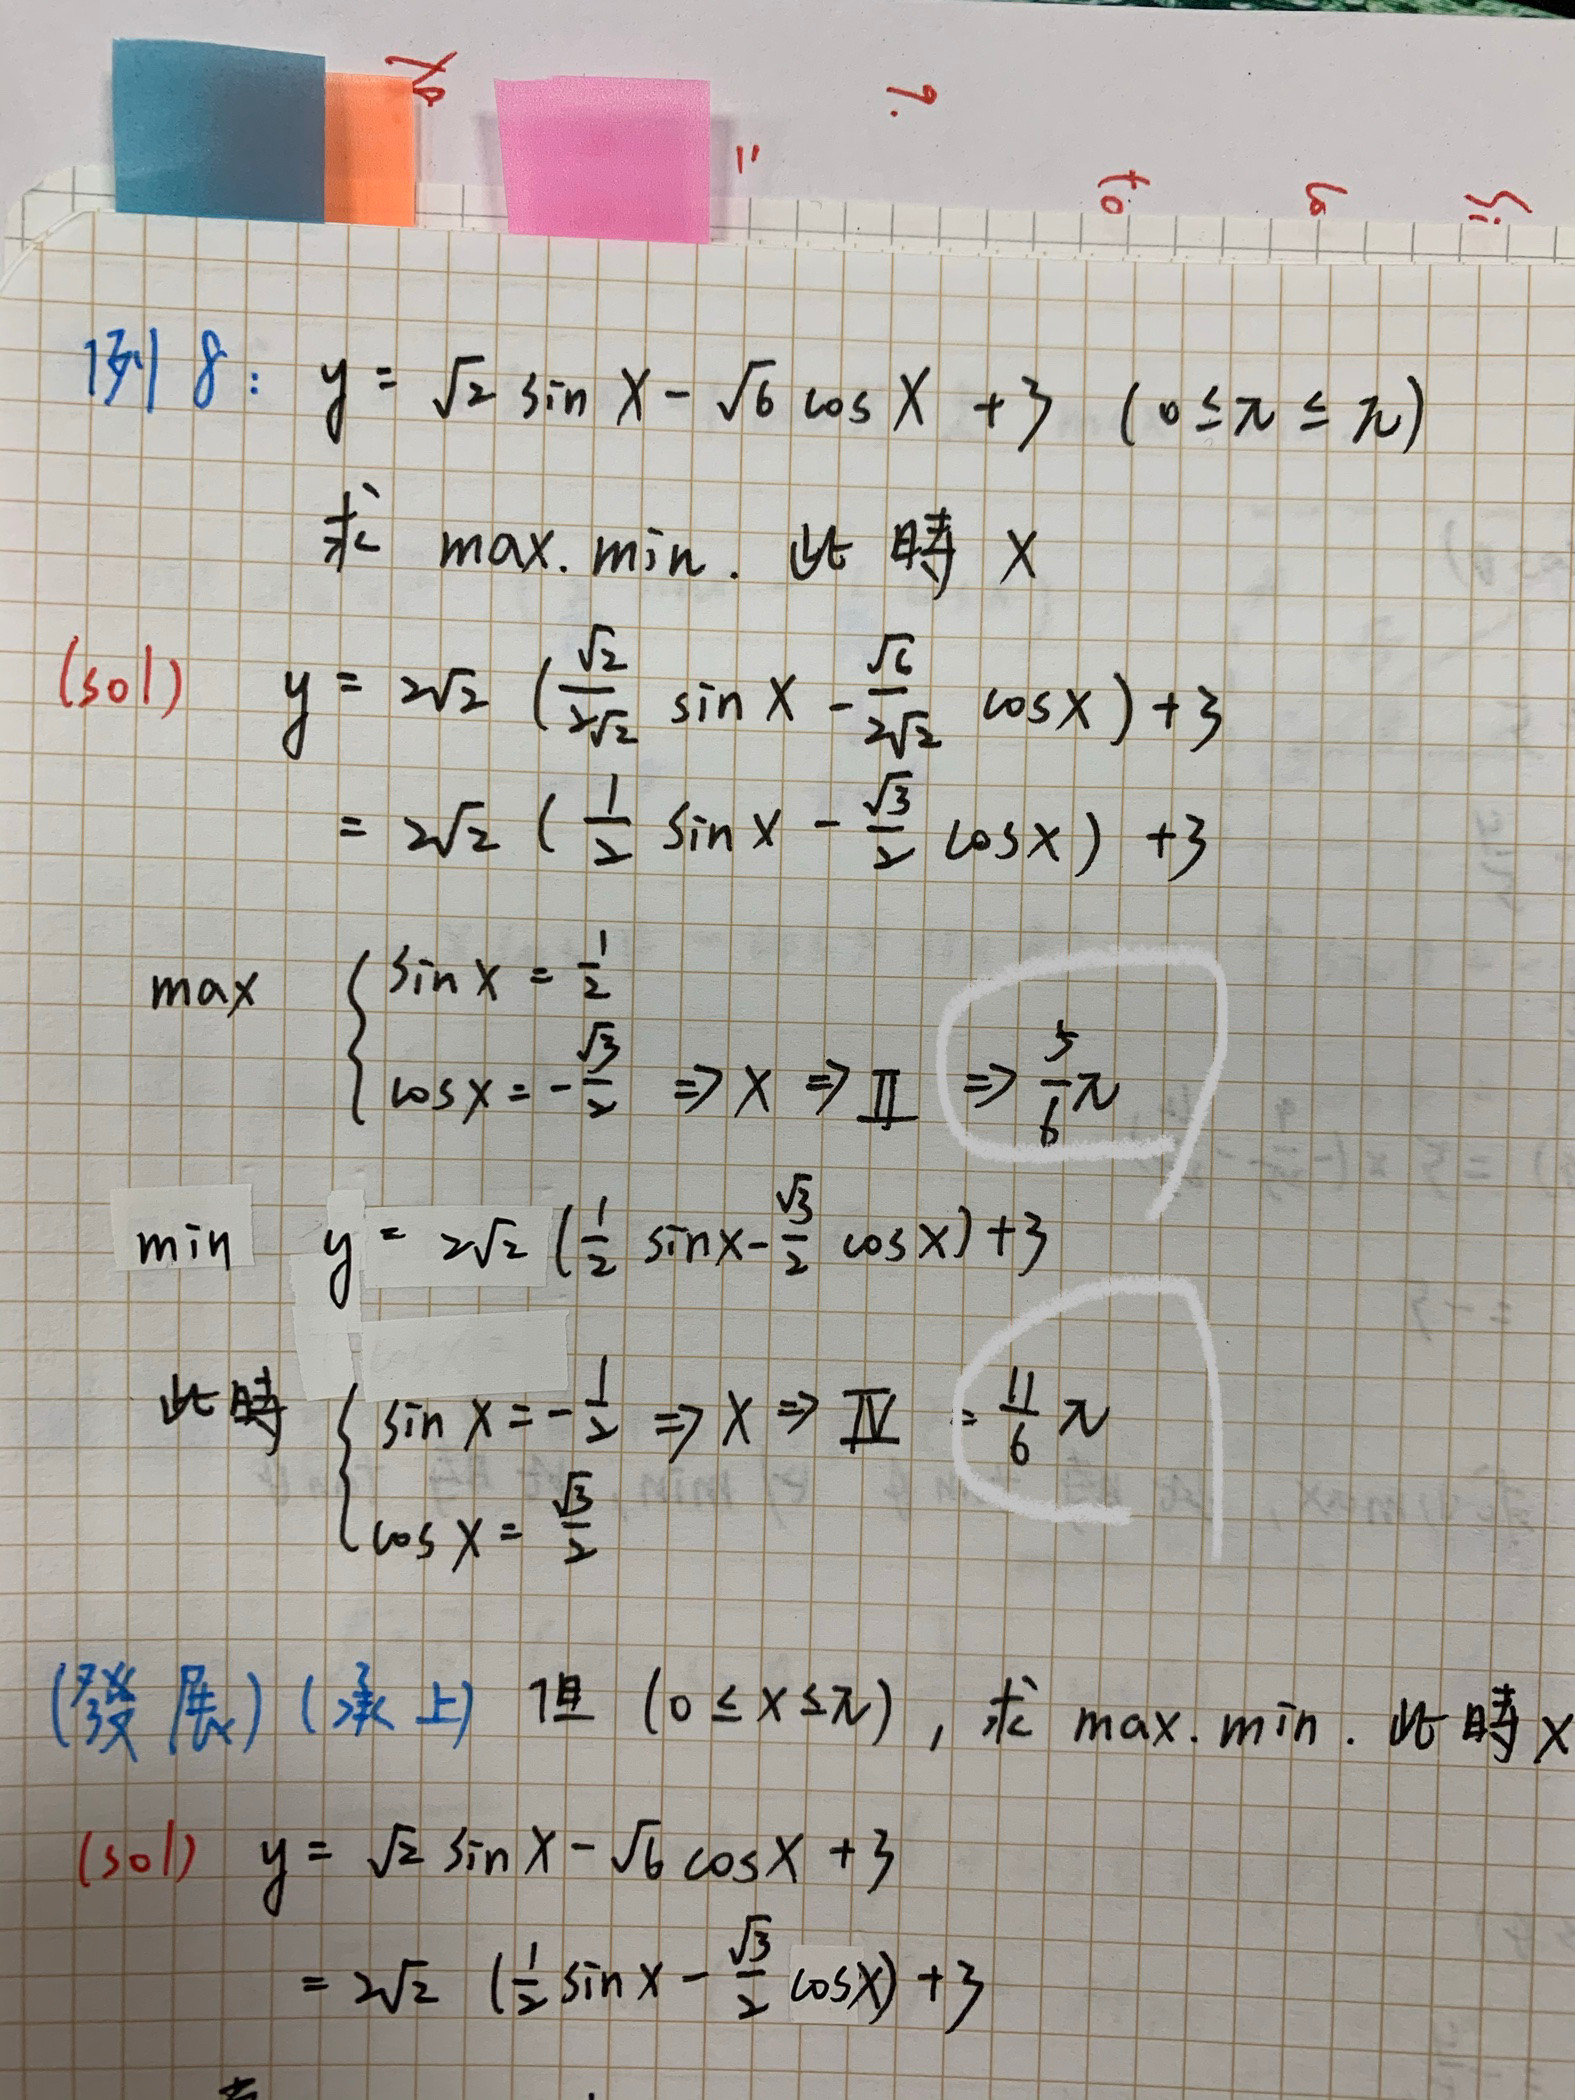 例8: y = √2 sin X - √6 cos X + 3 (0 ≤ π ≤ π)
求 max. min. 此時 X
(sol) y = 2√2 (√2/2√2 sin X - √6/2√2 cos X) + 3
= 2√2 (1/2 sin X - √3/2 cos X) + 3
max { sin X = 1/2
cos X = -√3/2 ⇒ X ⇒ Ⅱ ⇒ 5/6 π
min y = 2√2 (1/2 sin X - √3/2 cos X) + 3
此時 { sin X = -1/2 ⇒ X ⇒ Ⅳ = 11/6 π
cos X = √3/2
(發展) (承上) 但 (0 ≤ X ≤ π), 求 max. min. 此時 X
(sol) y = √2 sin X - √6 cos X + 3
= 2√2 (1/2 sin X - √3/2 cos X) + 3